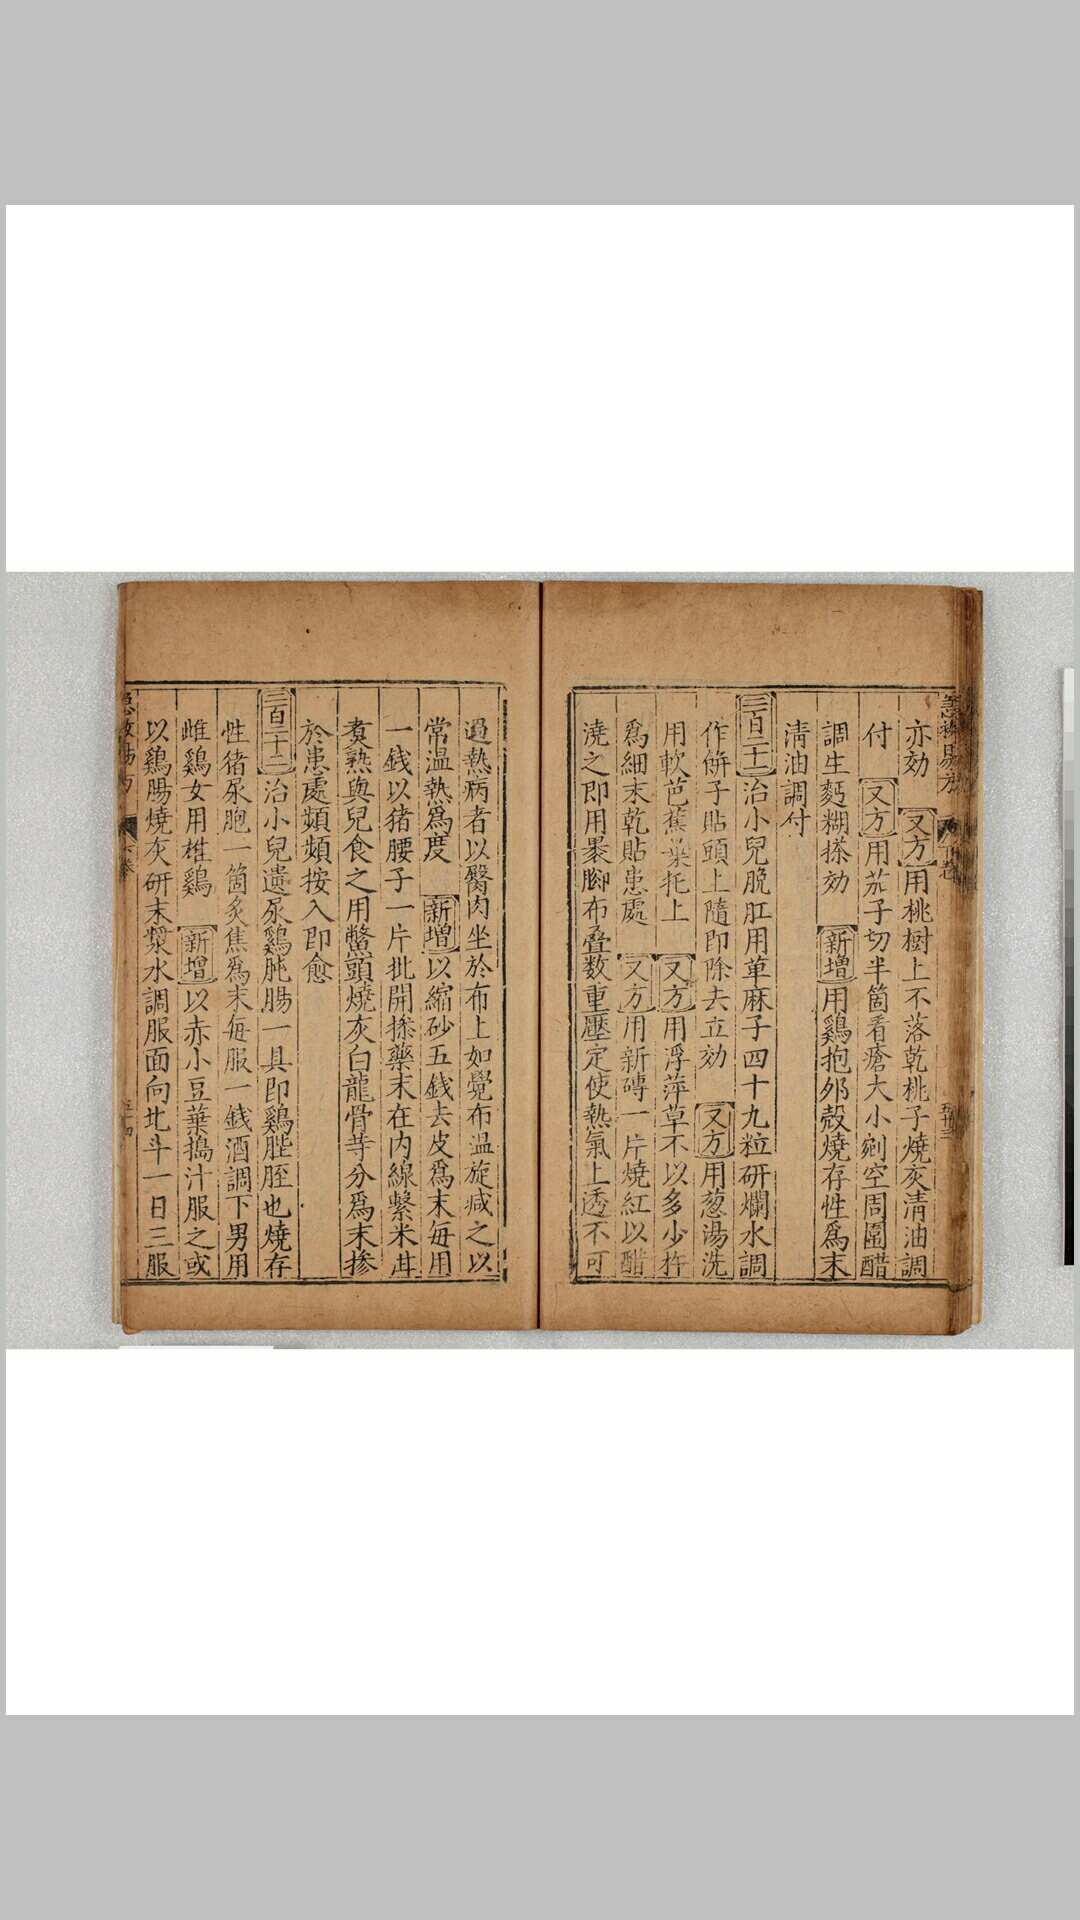 亦効 又方 用桃樹上不落乾桃子燒灰清油調
付 又方 用茄子切半箇看瘡大小剜空周圍醋
調生麪糊搽効 新增 用鷄抱夘殼燒存性爲末
清油調付
三百二十一 治小兒脫肛用萆麻子四十九粒研爛水調
作餅子貼頭上隨即除去立効 又方 用葱湯洗
用軟芭蕉葉托上 又方 用浮萍草不以多少杵
爲細末乾貼患處 又方 用新磚一片燒紅以醋
澆之即用褁脚布疊数重壓定使熱氣上透不可
過熱病者以臀肉坐於布上如覺布温旋减之以
常温熱爲度 新增 以縮砂五錢去皮爲末每用
一錢以猪腰子一片批開搽藥末在内線繫米泔
煑熟與兒食之用鱉頭燒灰白龍骨等分爲末摻
於患處頻頻按入即愈
三百二十二 治小兒遺尿鷄肫腸一具即鷄䏶胵也燒存
性猪尿胞一箇炙焦爲末每服一錢酒調下男用
雌鷄女用雄鷄 新增 以赤小豆葉搗汁服之或
以鷄腸燒灰研末漿水調服面向北斗一日三服